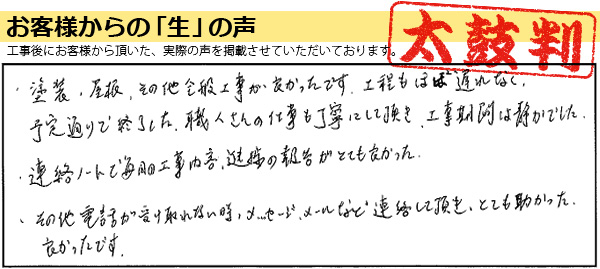 お客様からの「生」の声
工事後にお客様から頂いた、実際の声を掲載させていただいております。
太鼓判
・塗装、屋根、その他全般工事が良かったです。工程もほぼ遅れなく、
予定通りで終了した。職人さんの仕事も丁寧にして頂き、工事期間は静かでした。
・連絡ノートで毎日の工事内容、進捗の報告がとても良かった。
・その他電話が受け取れない時、メッセージ、メールなど連絡して頂き、とても助かった。
良かったです。